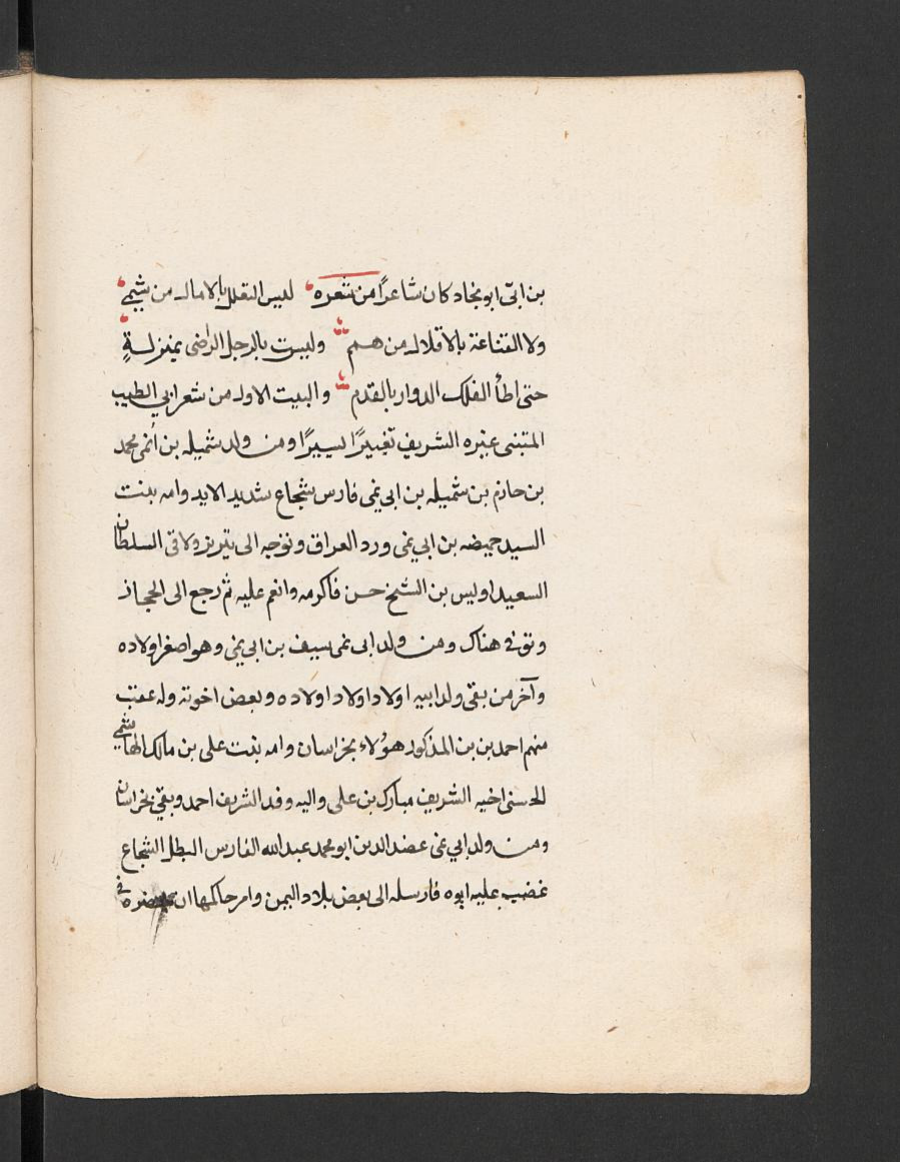 بن ابى ابو نجاد كان شاعرًا من شعره ليس التعلل بالامال من شيمي
ولا القناعة بالاقلال من همم وليست بالرجل الراضى بمنزلةٍ
حتى اطأ الفلك الدوار بالقدم والبيت الاول من شعر ابي الطيب
المتنبى غيره الشريف تغييرًا يسيرًا ومن ولد شميله بن أنمى محمد
بن حازم بن شميله بن ابى نمى فارس شجاع شديد الايد وامه بنت
السيد حميضه بن ابي نمى ورد العراق وتوجه الى تبريز ولاقى السلطان
السعيد اوليس بن الشيخ حسن فاكرمه وانعم عليه ثم رجع الى الحجاز
وتوفى هناك ومن ولد ابى نمى سيف بن ابى نمى وهو اصغر اولاده
وآخر من بقى ولد ابيه اولاد اولاد اولاده وبعض اخوته وله عقب
منهم احمد بن بن المذكور هؤلاء بخراسان وامه بنت على بن مالك الهاشمي
الحسنى اخيه الشريف مبارك بن على واليه وفد الشريف احمد وبقي بخراسان
ومن ولد ابي نمى عضد الدين ابو محمد عبد الله الفارس البطل الشجاع
غضب عليه ابوه فارسله الى بعض بلاد اليمن وامر حاكمها ان في